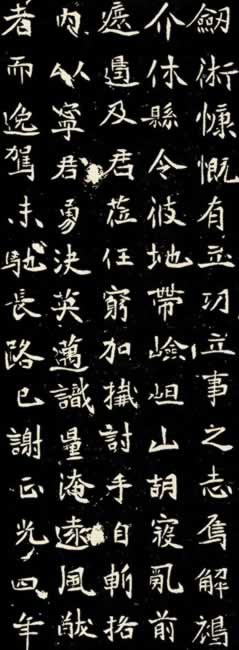 劒術慷慨有立功立事之志焉解褐
介休縣令彼地帶嶮岨山胡寇亂前
及君莅任窮加討手自斬挌
内以寧君勇決英邁識量淹遠風猷
者而逸駕未馳長路已謝正光四年